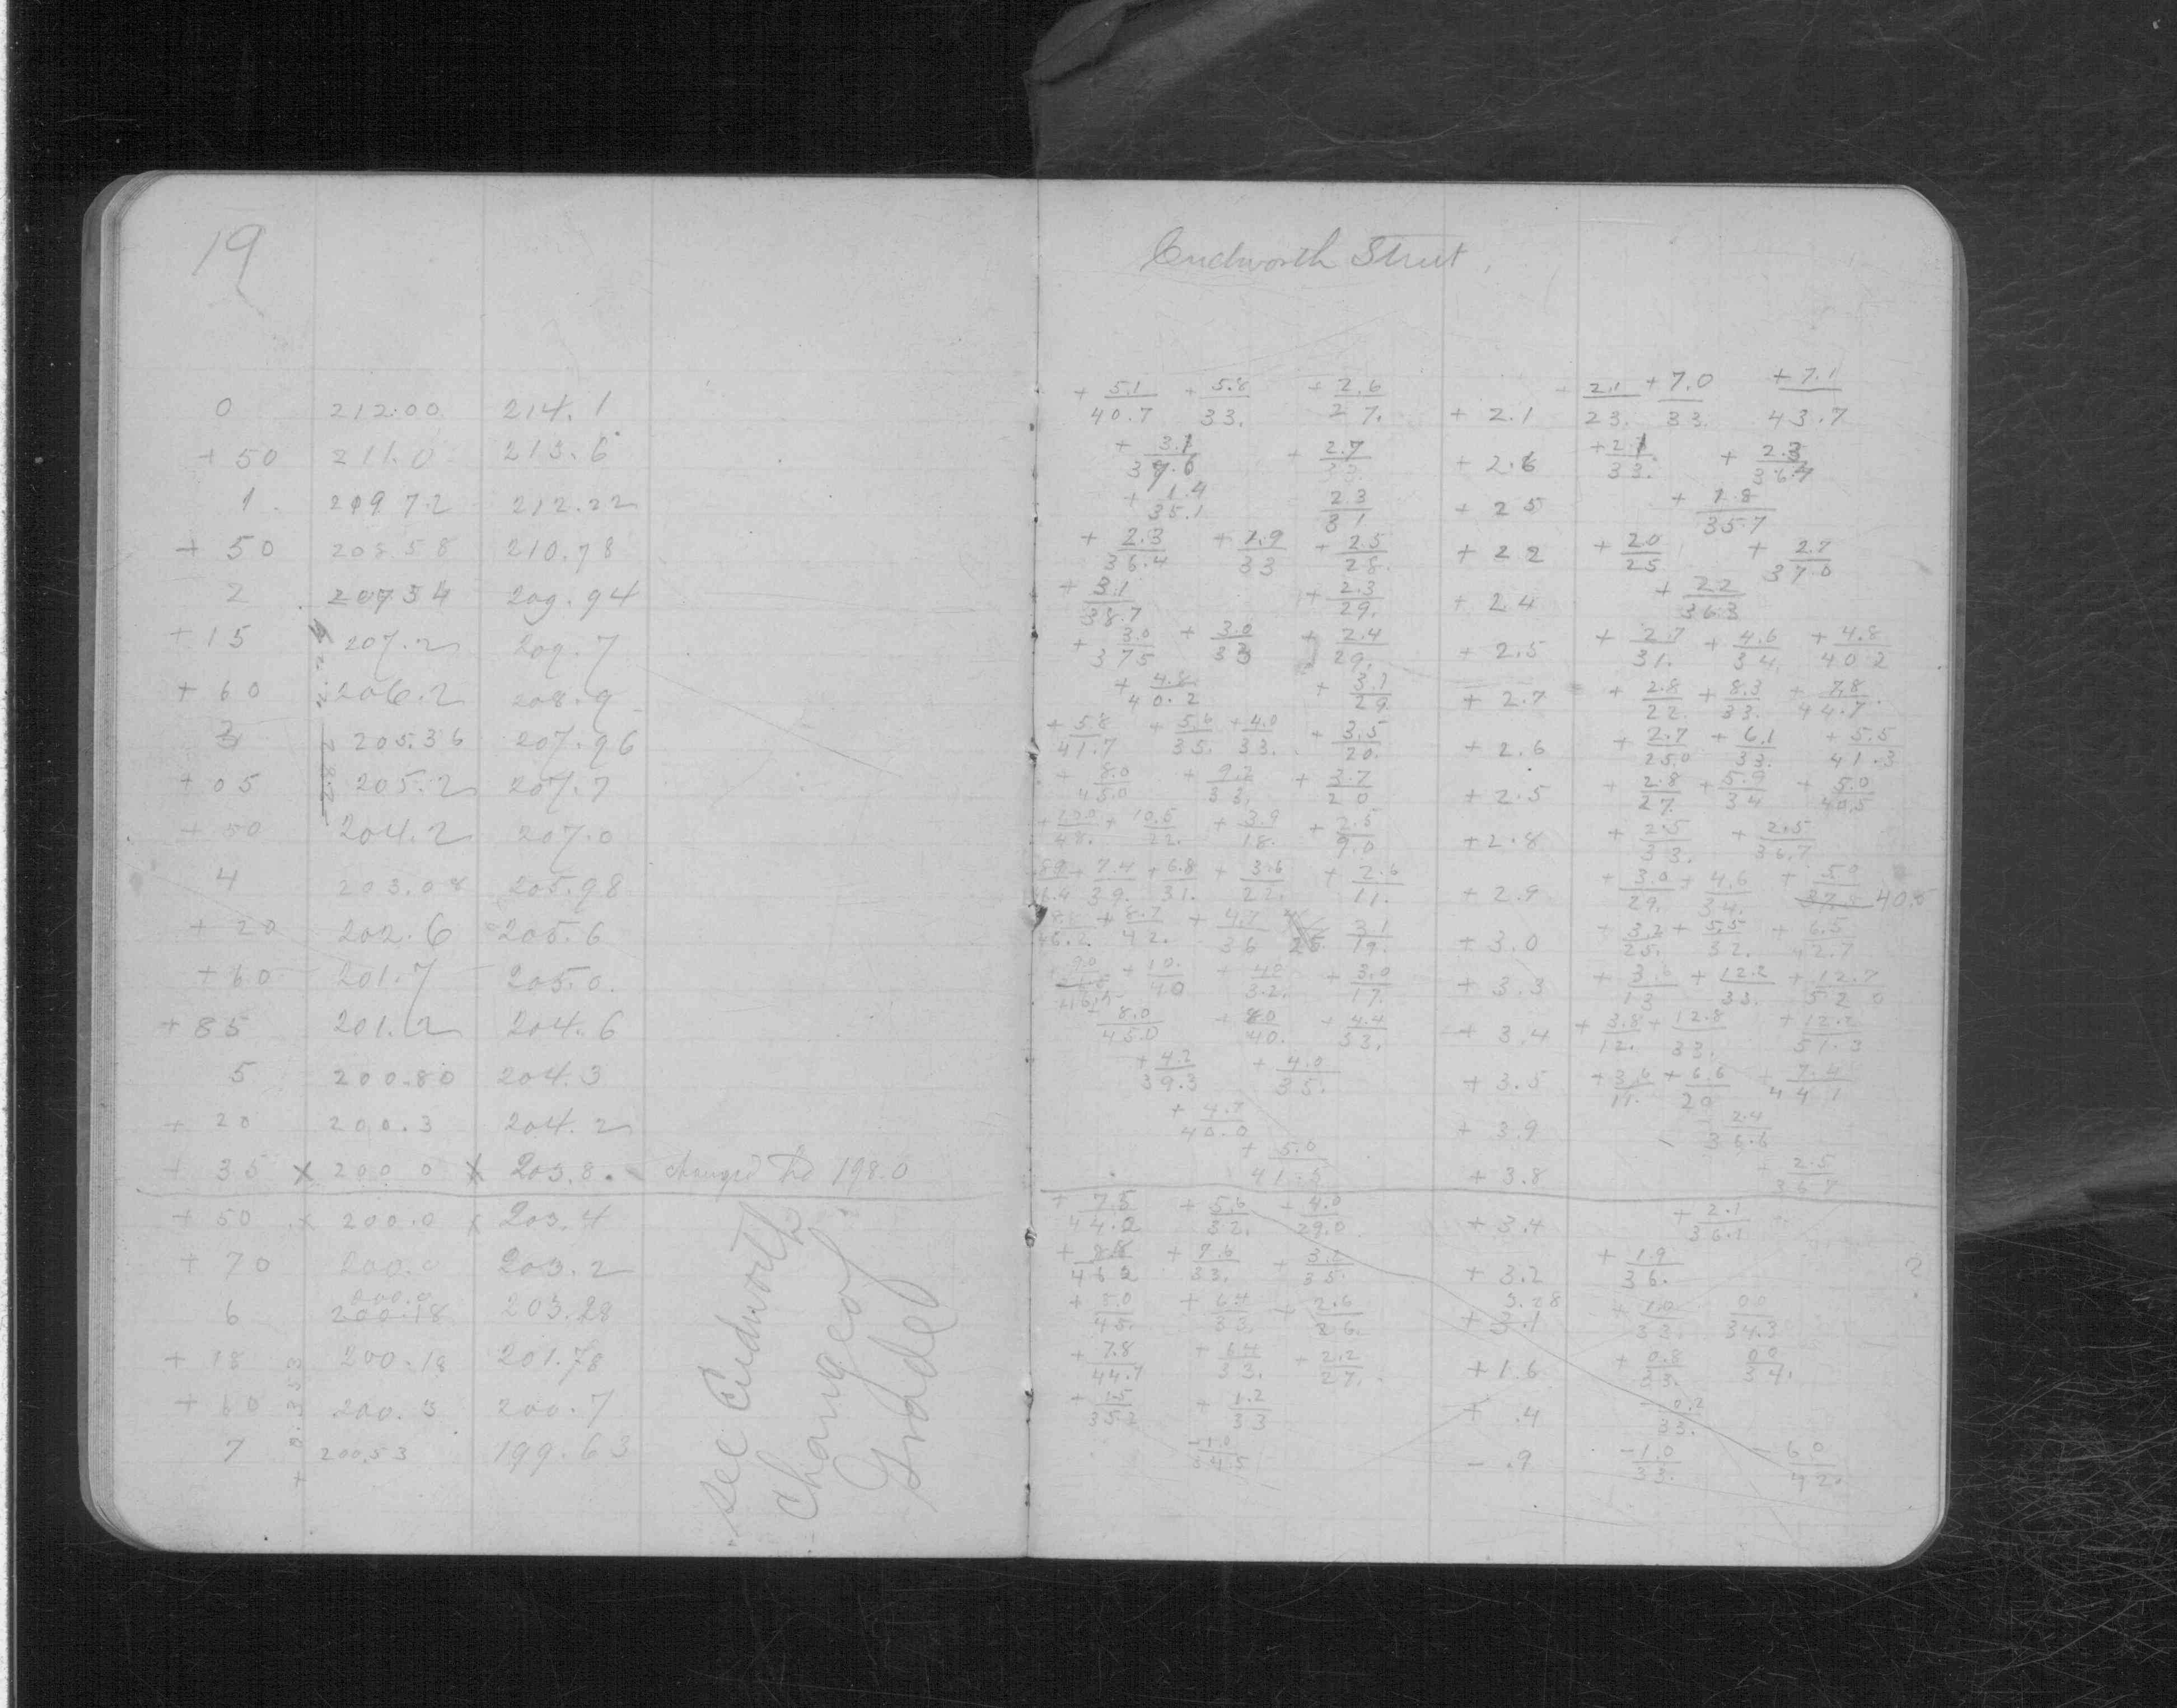 19
0 212.00 214.1
+ 50 211.0 213.6
1. 209.72 212.22
+ 50 208.58 210.78
2 207.54 209.94
+ 15 207.2 209.7
+ 60 206.2 208.9
3 205.36 207.96
+ 05 205.2 207.7
+ 50 204.2 207.0
4 203.08 205.98
+ 20 202.6 205.6
+ 60 201.7 205.0.
+ 85 201.2 204.6
5 200.80 204.3
+ 20 200.3 204.2
+ 35 x 200.0 x 203.8. changed to 198.0
+ 50 x 200.0 x 203.4
+ 70 200.0 203.2
200.0
6 200.18 203.28
+ 18 200.18 201.78
+ 60 200.3 200.7
7 200.53 199.63
+ 0.353
see Cudworth
change of
Grade
Cudworth Street,
+ 5.1/40.7 + 5.8/33. + 2.6/27. + 2.1 2.1/23. + 7.0/33. + 7.1/43.7
+ 3.1/37.6 + 2.7/33. + 2.6 + 2.1/33. + 2.3/36.7
+ 1.4/35.1 2.3/31 + 2.5 + 1.8/35.7
+ 2.3/36.4 + 1.9/33 + 2.5/28. + 2.2 + 20/25 + 2.7/37.0
+ 3.1/38.7 + 2.3/29. + 2.4 + 2.2/36.3
+ 3.0/37.5 + 3.0/33 + 2.4/29. + 2.5 + 2.7/31. + 4.6/34. + 4.8/40.2
+ 4.8/40.2 + 3.1/29 + 2.7 + 2.8/22. + 8.3/33. + 7.8/44.7
+ 5.8/41.7 + 5.6/35. + 4.0/33. + 3.5/20. + 2.6 + 2.7/25.0 + 6.1/33. + 5.5/41.3
+ 8.0/45.0 + 9.2/33. + 3.7/20 + 2.5 + 2.8/27. + 5.9/34 + 5.0/40.5
+ 10.0/48. + 10.5/22. + 3.9/18. + 2.5/9.0 + 2.8 + 2.5/33. + 2.5/36.7
+ 7.4/39. + 6.8/31. + 3.6/22. + 2.6/11. + 2.9 + 3.0/29. + 4.6/34. + 5.0/40.5
+ 8.7/42. + 4.7/36 3.1/19. + 3.0 + 3.2/25. + 5.5/32. + 6.5/42.7
+ 9.0/46.5 + 10./40 + 4.2/32. + 3.0/17. + 3.3 + 3.6/13 + 12.2/33. + 12.7/52.0
8.0/45.0 + 8.0/40. + 4.4/33. + 3.4 + 3.8/12. + 12.8/33. + 12.2/51.3
+ 4.2/39.3 + 4.0/35. + 3.5 + 3.6/11. + 6.6/20 + 7.4/44.1
+ 4.7/40.0 + 3.9 - 2.4/36.6
+ 5.0/41.5 + 3.8 + 2.5/36.7
+ 7.5/44.2 + 5.6/32. + 4.0/29.0 + 3.4 + 2.1/36.1
+ 8.8/46.2 + 7.6/33. + 3.2/35. + 3.2 + 1.9/36. ?
3.28
+ 8.0/45. + 6.4/33. + 2.6/26. + 3.1 + 1.0/33. 0.0/34.3
+ 7.8/44.7 + 6.4/33. + 2.2/27. + 1.6 + 0.8/33. 0.0/34.
+ 1.5/35.2 + 1.2/33 + .4 - 0.2/33.
- 1.0/34.5 - .9 - 1.0/33. - 6.0/42.